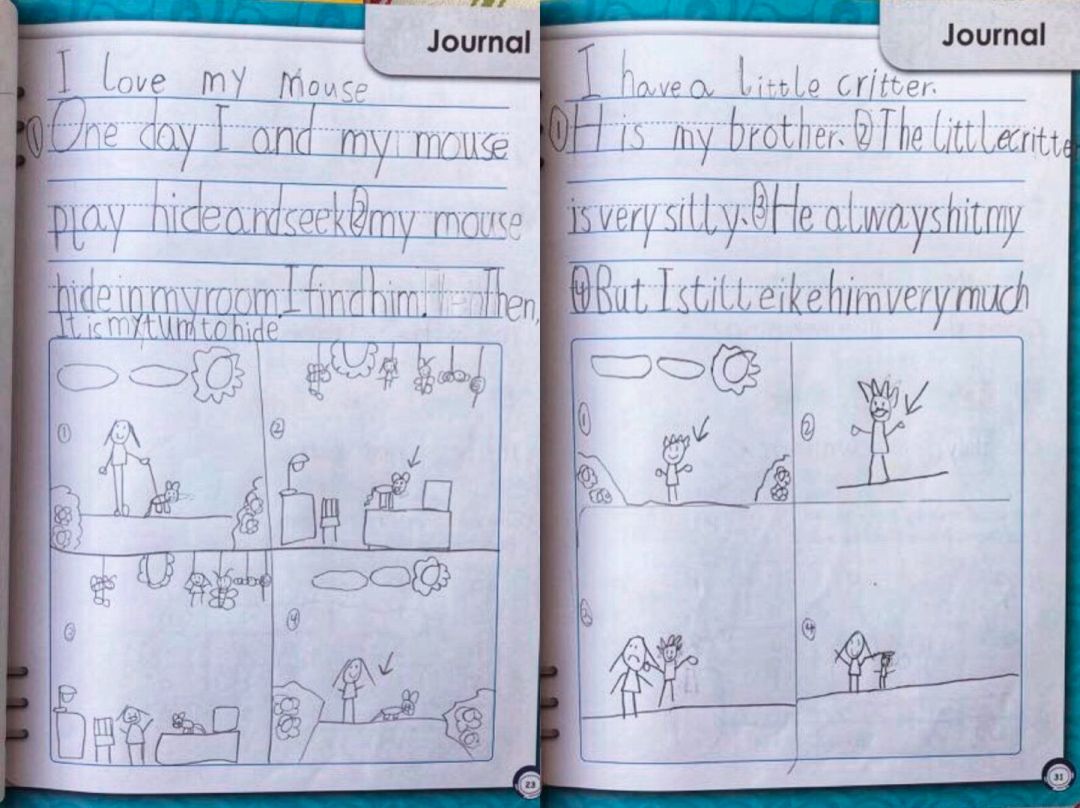 Journal
I Love my mouse
① One day I and my mouse
play hideandseek ② my mouse
hide in my room. I find him. Then,
It is my turn to hide
①
②
③
④
23
Journal
I have a little critter.
① H is my brother. ② The little critte
is very silly. ③ He always hit my
④ But I still eike him very much
①
②
③
④
31